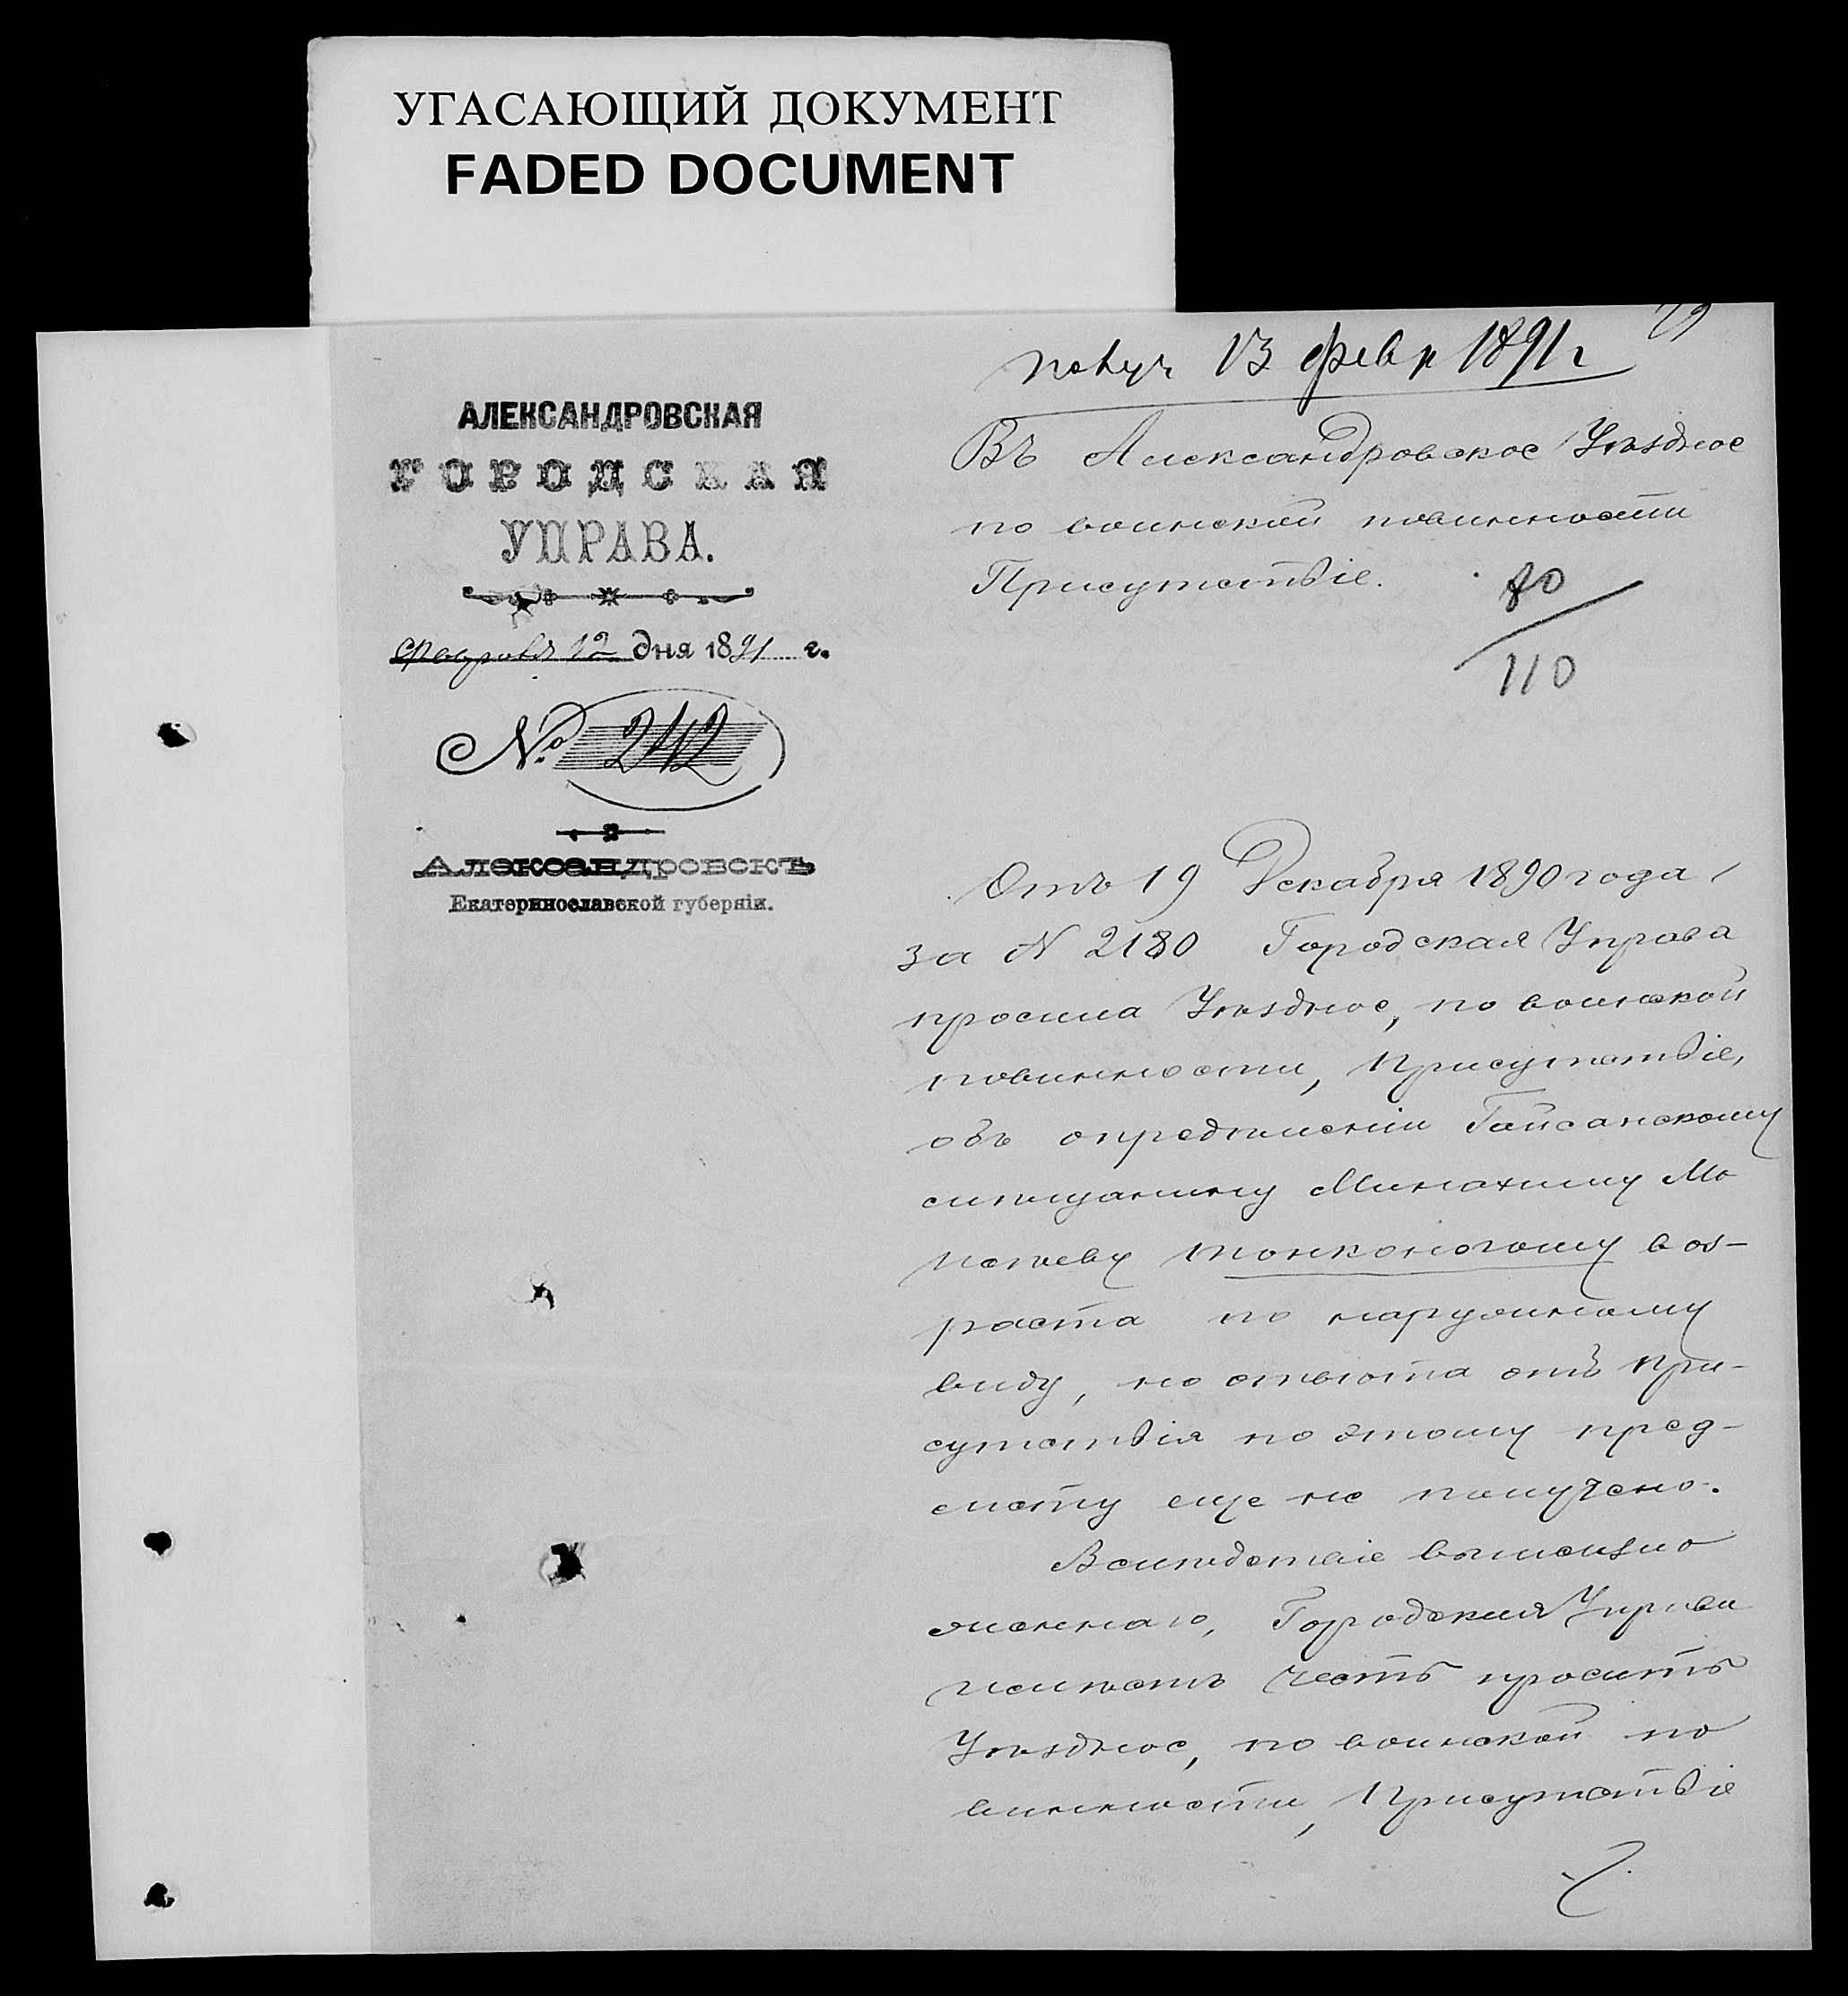 УГАСАЮЩИЙ ДОКУМЕНТ
FADED DOCUMENT
получ 13 февр 1891 г
АЛЕКСАНДРОВСКАЯ
ГОРОДСКАЯ
УПРАВА.
Февраля 12 дня 1891 г.
№ 242
Александровскъ
Екатеринославской губерніи.
Въ Александровское Уѣздное
по воинской повинности
Присутствіе.
80
110
Отъ 19 Декабря 1890 года,
за N 2180 Городская Управа
просила Уѣздное, по воинской
повинности, Присутствіе,
объ опредѣленіи Гайсанскому
мѣщанину Минахиму Мо
Тонконогому воз-
раста по наружному
виду, но отвѣта отъ При-
сутствія по этому пред-
мету еще не получено.
Вслѣдствіе вышеизло
женнаго, Городская Управа
имѣетъ честь просить
Уѣздное, по воинской по
винности, Присутствіе